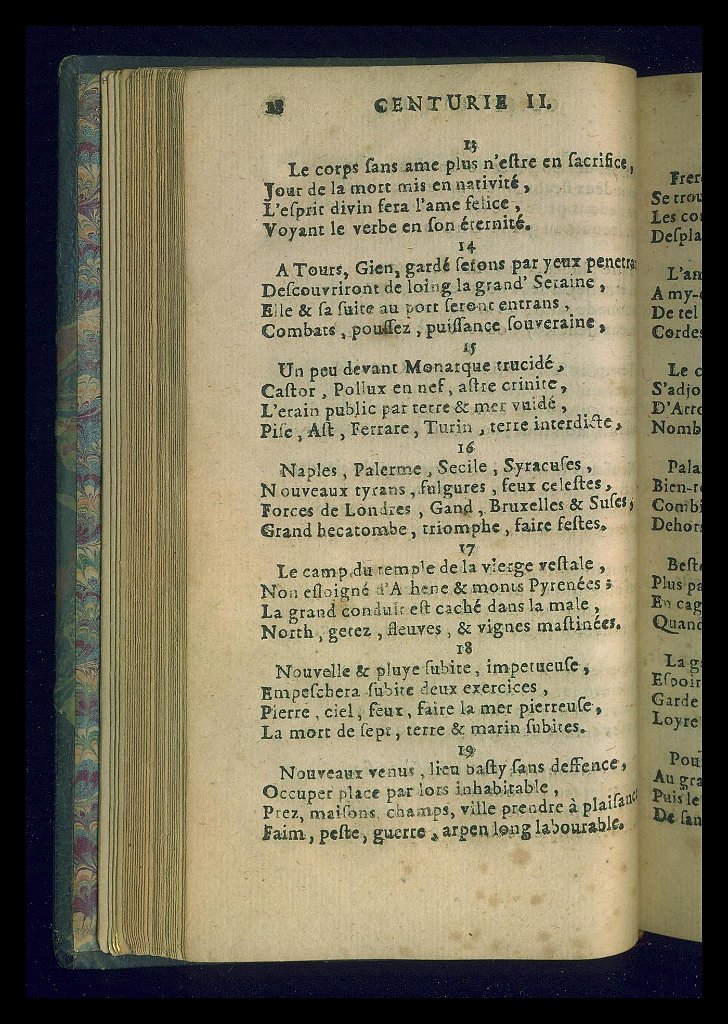 28 CENTURIE II.
13
Le corps ſans ame plus n'eſtre en ſacrifice,
Jour de la mort mis en nativité,
L'eſprit divin fera l'ame felice,
Voyant le verbe en ſon éternité.
14
A Tours, Gien, gardé ſerons par yeux penetra
Deſcouvriront de loing la grand' Seraine,
Elle & ſa ſuite au port ſeront entrans,
Combats, pouſſez, puiſſance ſouveraine,
15
Un peu devant Monarque trucidé,
Caſtor, Pollux en nef, aſtre crinite,
L'erain public par terre & mer vuidé,
Piſe, Aſt, Ferrare, Turin, terre interdicte,
16
Naples, Palerme, Secile, Syracuſes,
Nouveaux tyrans, fulgures, feux celeſtes,
Forces de Londres, Gand, Bruxelles & Suſes,
Grand hecatombe, triomphe, faire feſtes.
17
Le camp du temple de la vierge veſtale,
Non eſloigné d'A hene & monts Pyrenées;
La grand conduit eſt caché dans la male,
North, getez, fleuves, & vignes maſtinées.
18
Nouvelle & pluye ſubite, impetueuſe,
Empeſchera ſubite deux exercices,
Pierre, ciel, feux, faire la mer pierreuſe,
La mort de ſept, terre & marin ſubites.
19
Nouveaux venus, lieu baſty ſans deffence,
Occuper place par lors inhabitable,
Prez, maiſons, champs, ville prendre à plaiſanc
Faim, peſte, guerre, arpen long labourable.
Frer
Se trou
Les co
Deſpla
L'am
A my-
De tel
Cordes
Le c
S'adjo
D'Arto
Nomb
Pala
Bien-r
Combi
Dehors
Beſte
Plus pa
En cag
Quand
La g
Eſpoir
Garde
Loyre
Pou
Au gra
Puis le
De ſan